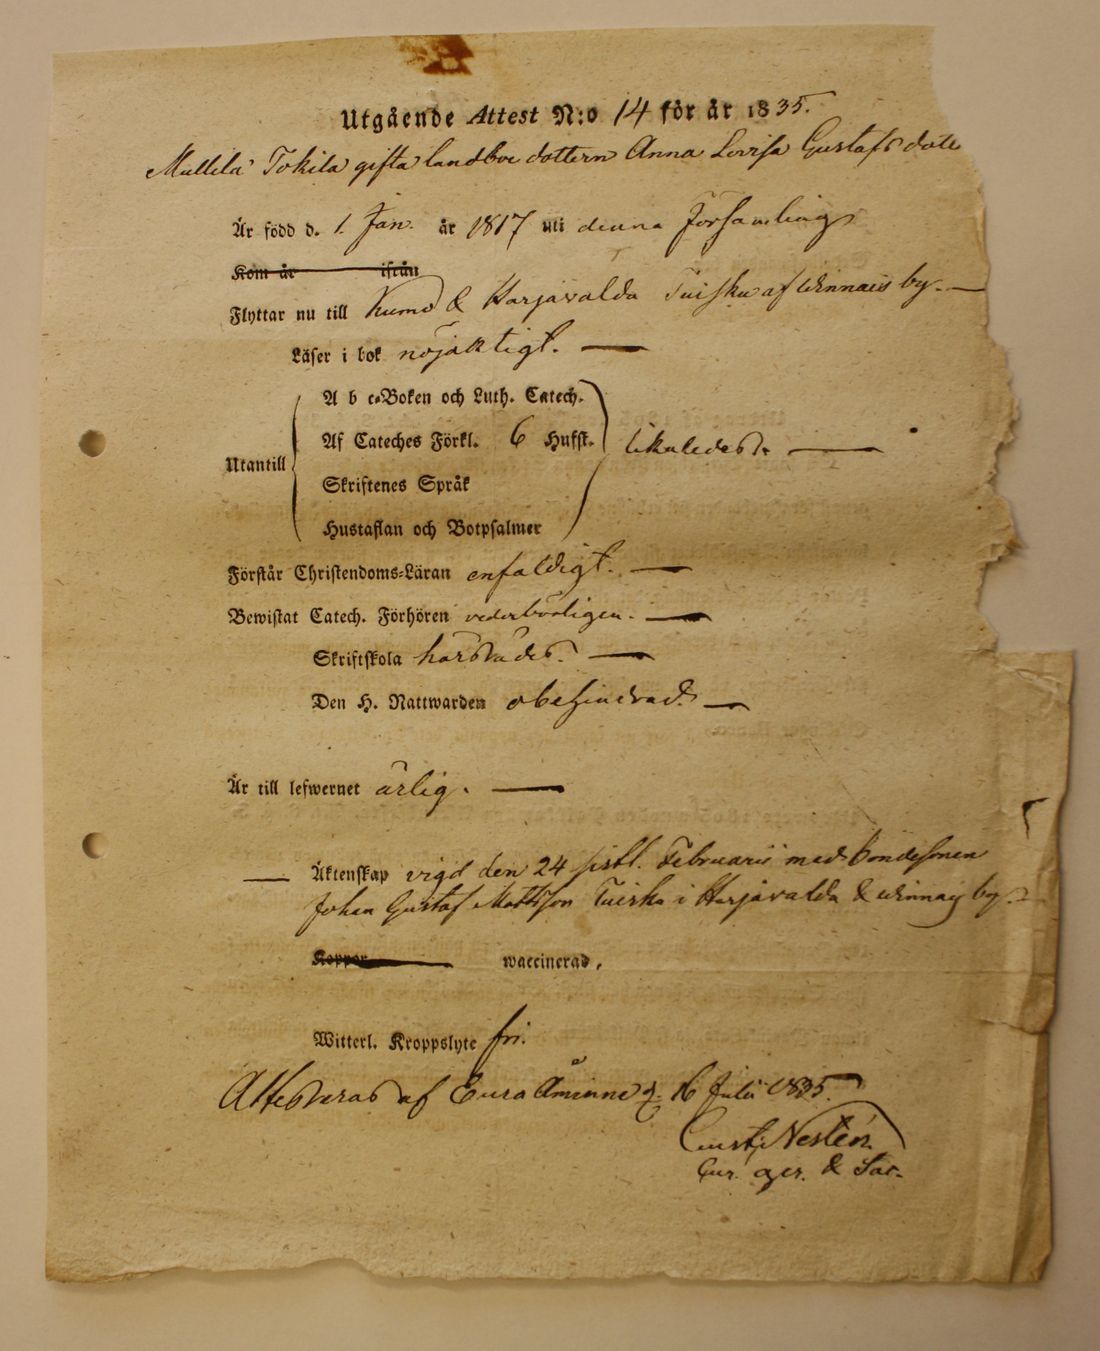 Utgående Attest N:o 14 för år 1835.
Mullila Tokila gifta landboe dottern Anna Lovisa Gustafs dott
Är född d. 1 Jan. år 1817 uti denna Församling
Kom år ifrån
Flyttar nu till Kumo & Harjavalda Tuisku af Winnais by.
Läser i bok nöjaktigt.
A b c-Boken och Luth. Catech.
Af Cateches Förkl. 6 Hufst. likaledes.
Utantill
Skriftenes Språk
Hustaflan och Botpsalmer
Förstår Christendoms-Läran enfaldigt.
Bewistat Catech. Förhören vederbörligen.
Skriftskola härstädes.
Den H. Nattwarden obehindrad.
Är till lefwernet ärlig.
Äktenskap vigd den 24 sistl. Februarii med bondesonen
Johan Gustaf Mattsson Tuisku i Harjavalda & Winnais by.
Koppor waccinerad.
Witterl. Kroppslyte fri.
Attesteras af Eura Åminne d. 16 Julii 1835.
Nestér.
& Sac.